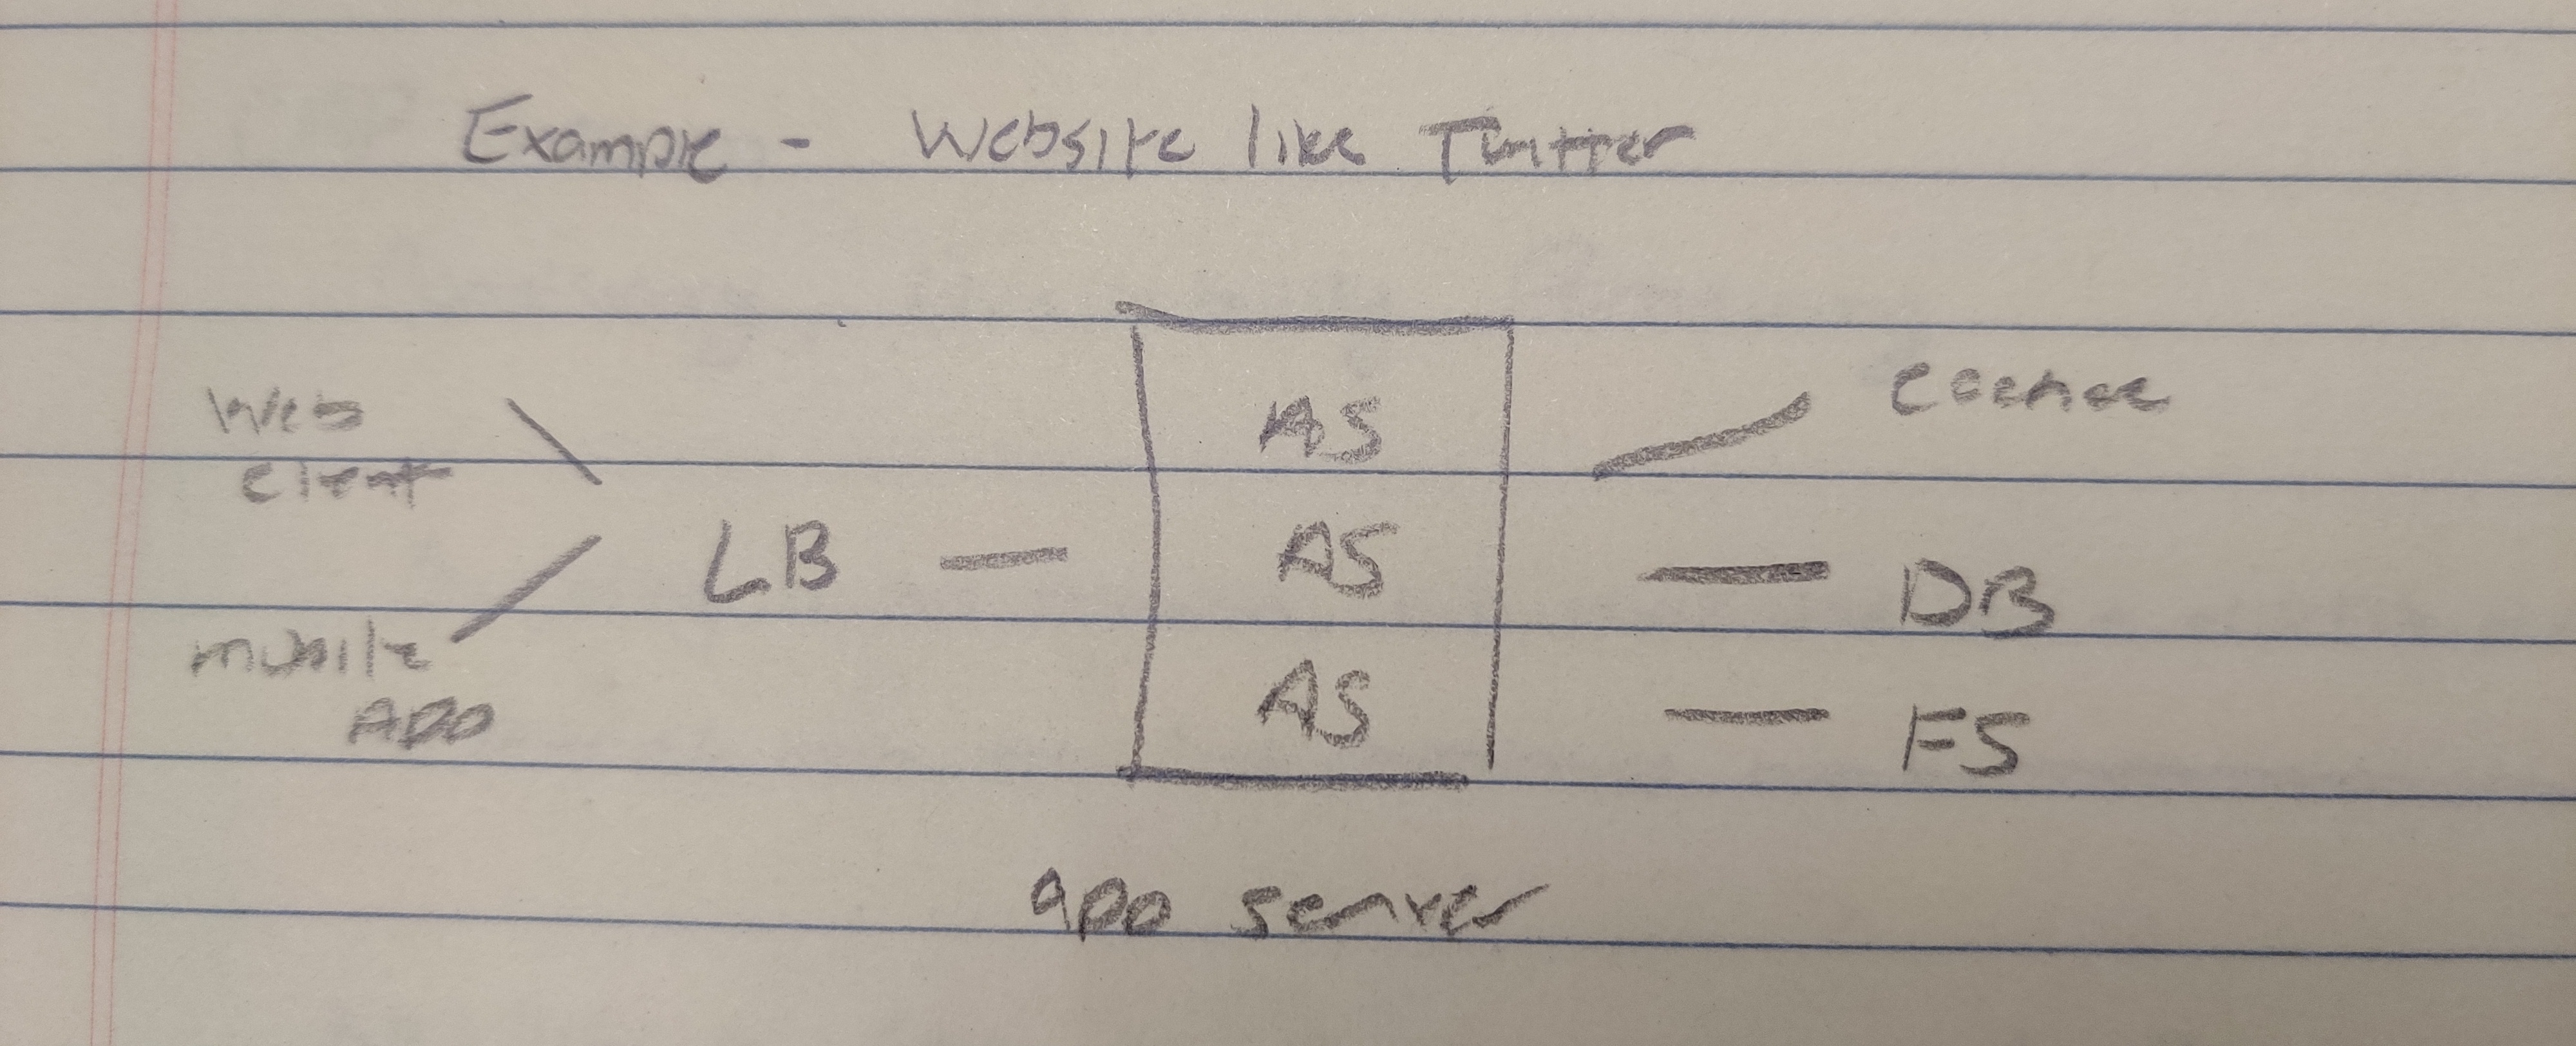 Example - Website like Twitter
Web
client
mobile
App
LB
AS
AS
AS
app server
cache
DB
FS